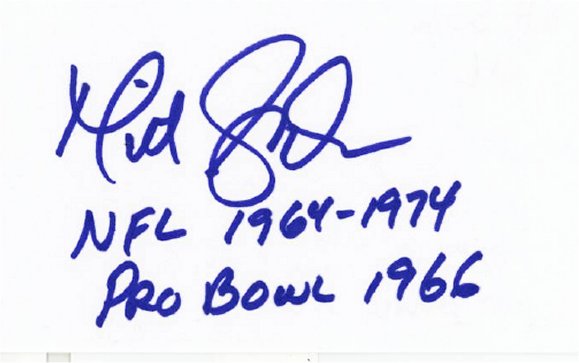 Milt Sunde
NFL 1964-1974
PRO BOWL 1966